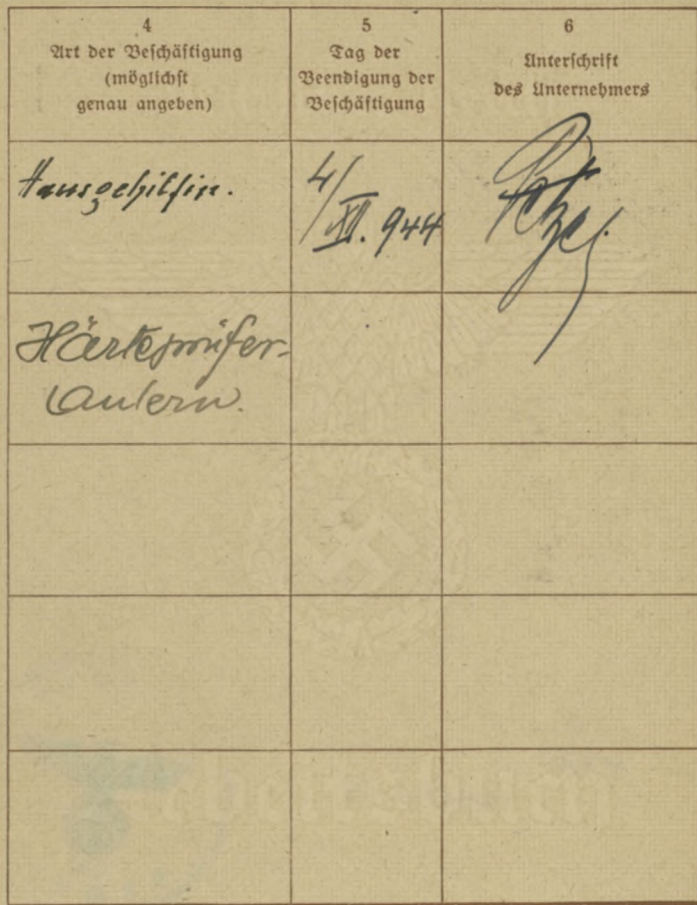 4
Art der Beschäftigung
(möglichst
genau angeben)
5
Tag der
Beendigung der
Beschäftigung
6
Unterschrift
des Unternehmers
Hausgehilfin.
4/XII. 944
Härteprüfer-
Arbeitsbuch